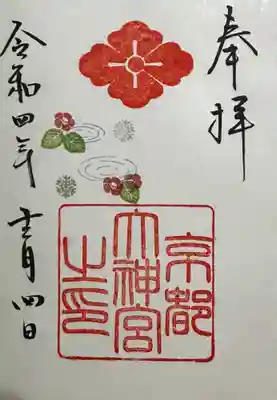 奉拝
京都
大神宮
之印
令和四年 十二月四日